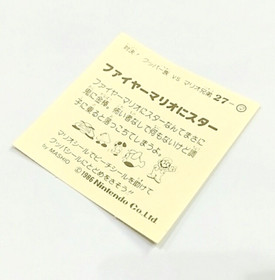 対決・クッパ一族 VS マリオ兄弟 27-㊀
ファイヤーマリオにスター
ファイヤーマリオにスターなんてまさに
鬼に金棒。怖い者なしで何もないけど調
子に乗ると落っこちてしまうよ。
マリオシールでピーチシールを助けて
クッパシールにとどめをさそう!!
by MASHIO
©1986 Nintendo Co.,Ltd